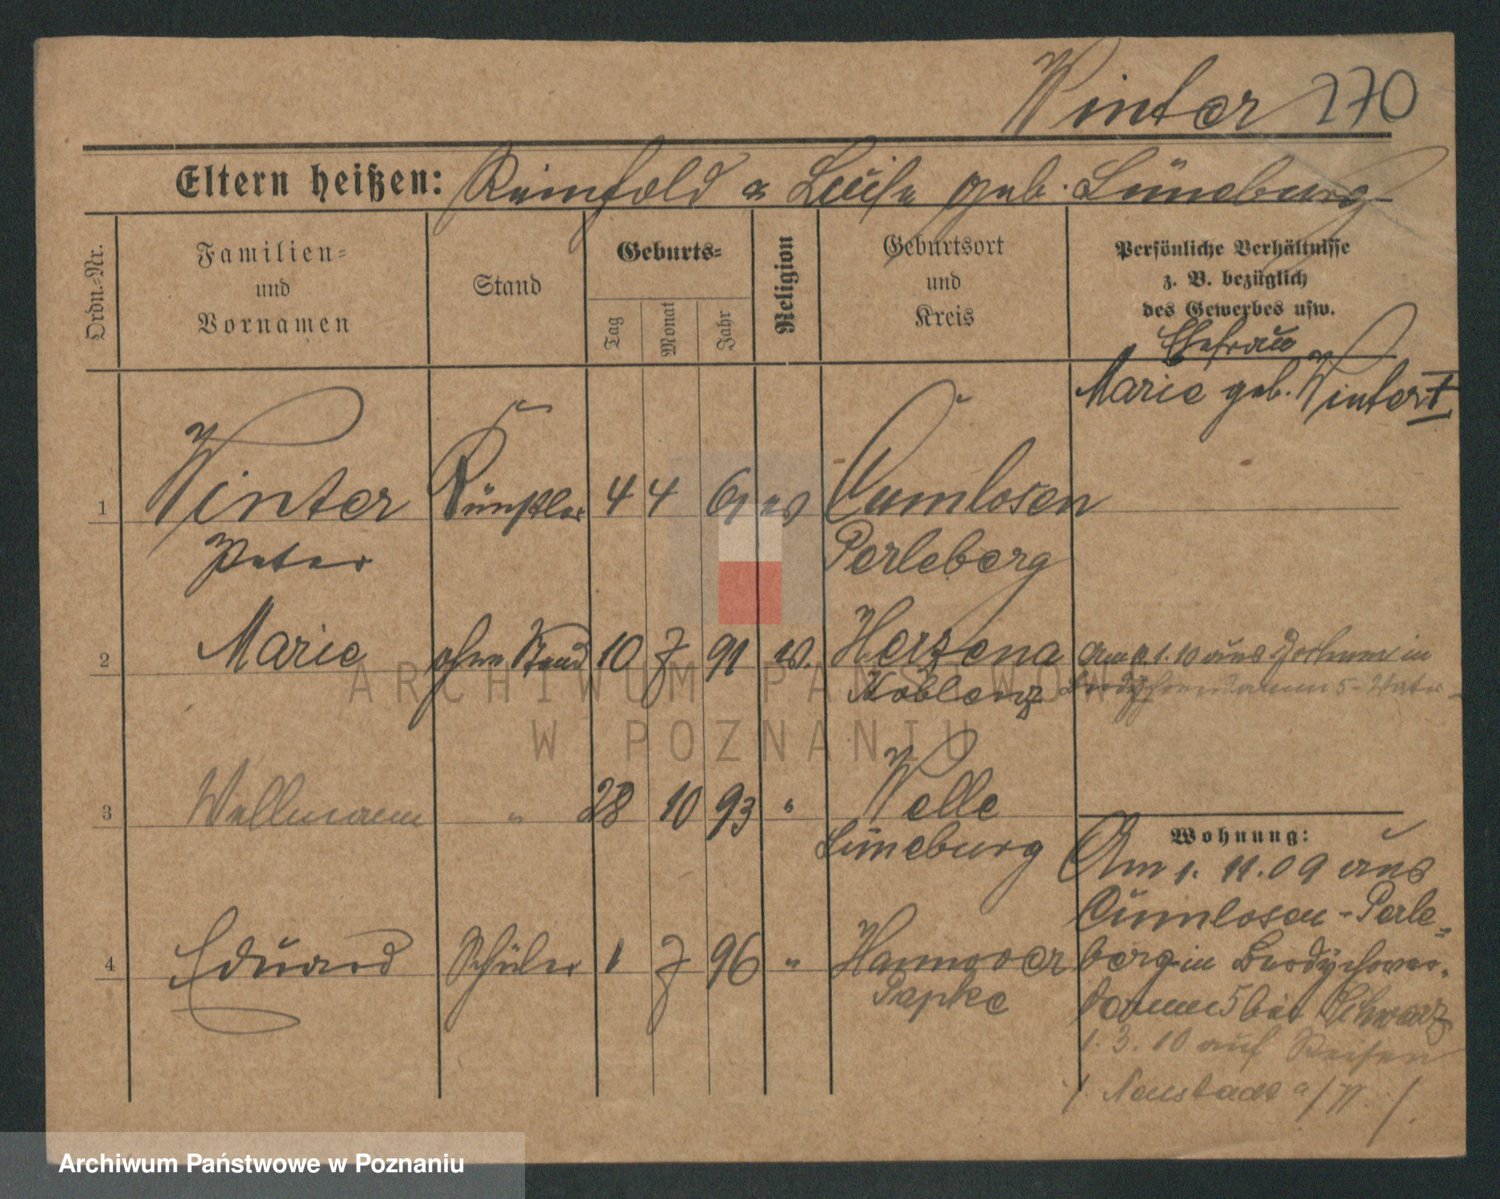 Winter 270
Eltern heißen: Reinhold u Luise geb. Lüneburg
Ordn.-Nr.
Familien-
und
Vornamen
Stand
Geburts-
Tag
Monat
Jahr
Religion
Geburtsort
und
Kreis
Persönliche Verhältnisse
z. B. bezüglich
des Gewerbes usw.
Ehefrau
Marie geb. Winter †
1 Winter Künstler 4 4 61 ev Cumlosen
Peter Perleberg
2 Marie ohne Stand 10 7 91 ev. Herzena am 1.10 aus in
Koblenz 5
3 Wellmann " 28 10 93 " Welle
Lüneburg
Wohnung:
Am 1. 11. 09 aus
Cumlosen - Perle-
4 Eduard Schüler 1 7 96 " Hannover berg in
Papke 5 bei Schwarz
1. 3. 10 auf Reisen
/ Neustadt a/W. /
ARCHIWUM PAŃSTWOWE
W POZNANIU
Archiwum Państwowe w Poznaniu